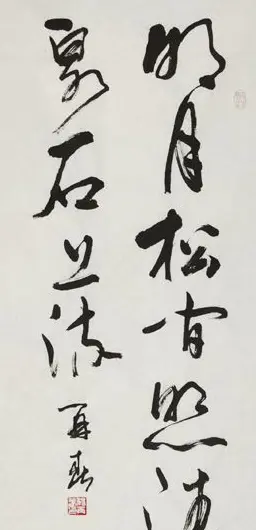 明月松间照清
泉石上流
再春